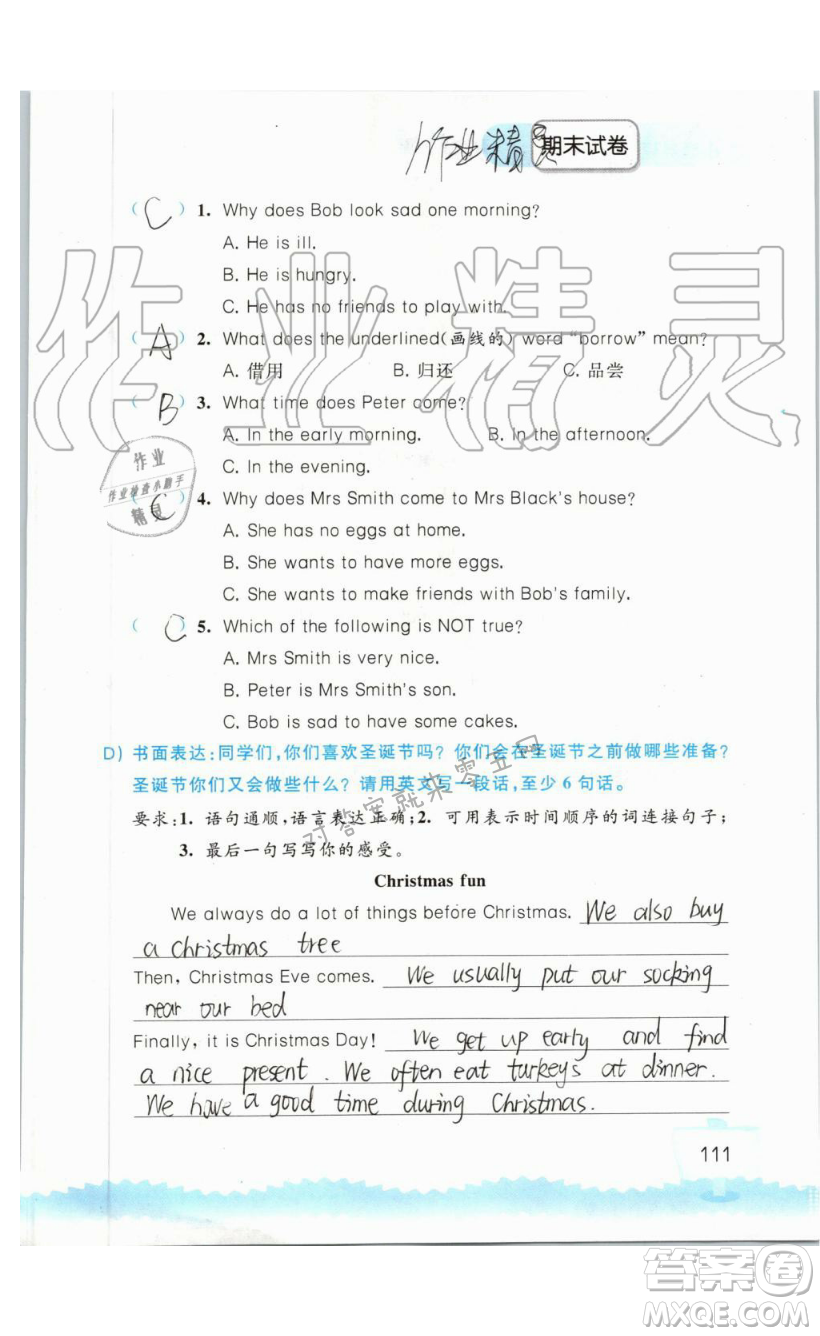 作业精灵
期末试卷
( C ) 1. Why does Bob look sad one morning?
A. He is ill.
B. He is hungry.
C. He has no friends to play with.
( A ) 2. What does the underlined(画线的) word "borrow" mean?
A. 借用 B. 归还 C. 品尝
( B ) 3. What time does Peter come?
A. In the early morning. B. In the afternoon.
C. In the evening.
( C ) 4. Why does Mrs Smith come to Mrs Black's house?
A. She has no eggs at home.
B. She wants to have more eggs.
C. She wants to make friends with Bob's family.
( C ) 5. Which of the following is NOT true?
A. Mrs Smith is very nice.
B. Peter is Mrs Smith's son.
C. Bob is sad to have some cakes.
D) 书面表达:同学们,你们喜欢圣诞节吗？你们会在圣诞节之前做哪些准备？
圣诞节你们又会做些什么？请用英文写一段话,至少 6 句话。
要求:1. 语句通顺,语言表达正确;2. 可用表示时间顺序的词连接句子;
3. 最后一句写写你的感受。
Christmas fun
We always do a lot of things before Christmas. We also buy
a christmas tree
Then, Christmas Eve comes. We usually put our socking
near our bed
Finally, it is Christmas Day! We get up early and find
a nice present. We often eat turkeys at dinner.
We have a good time during Christmas.
111
作业精灵
作业
作业检查小助手
精灵
对答案就来零五网
答案圈
MXQE.COM